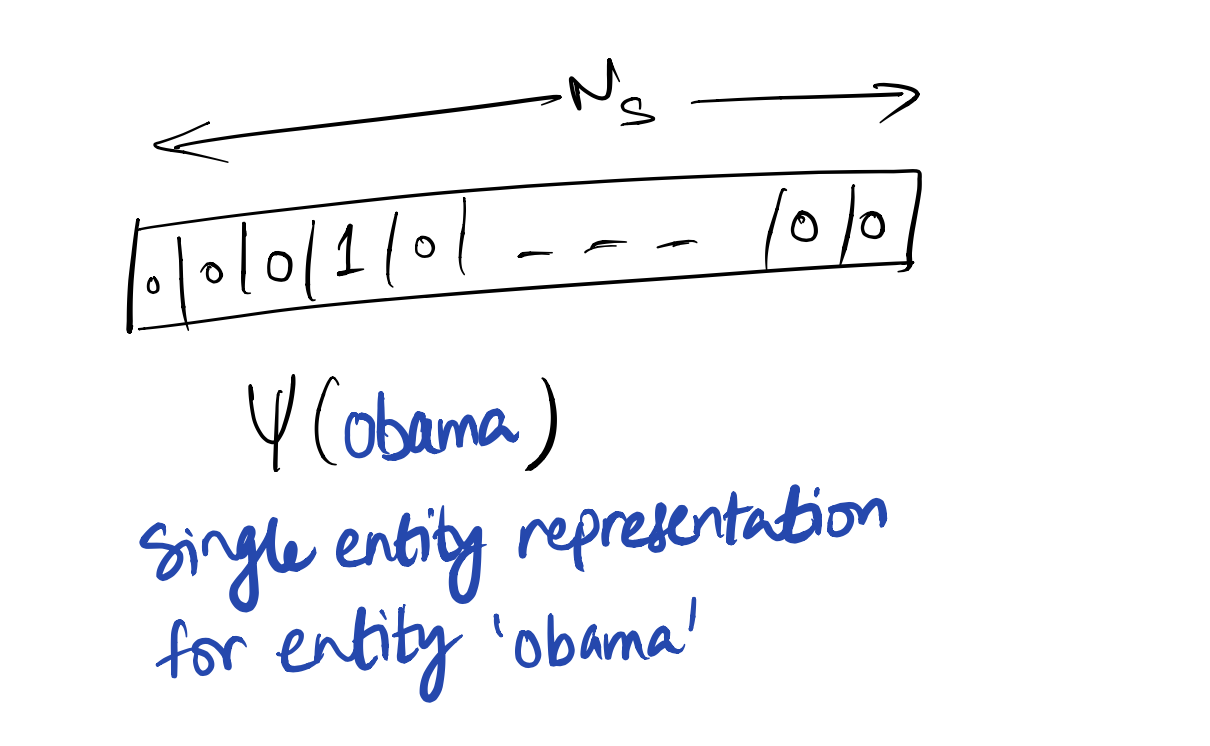 N_s
0 0 0 1 0 - - - 0 0
Ψ(obama)
single entity representation
for entity 'obama'